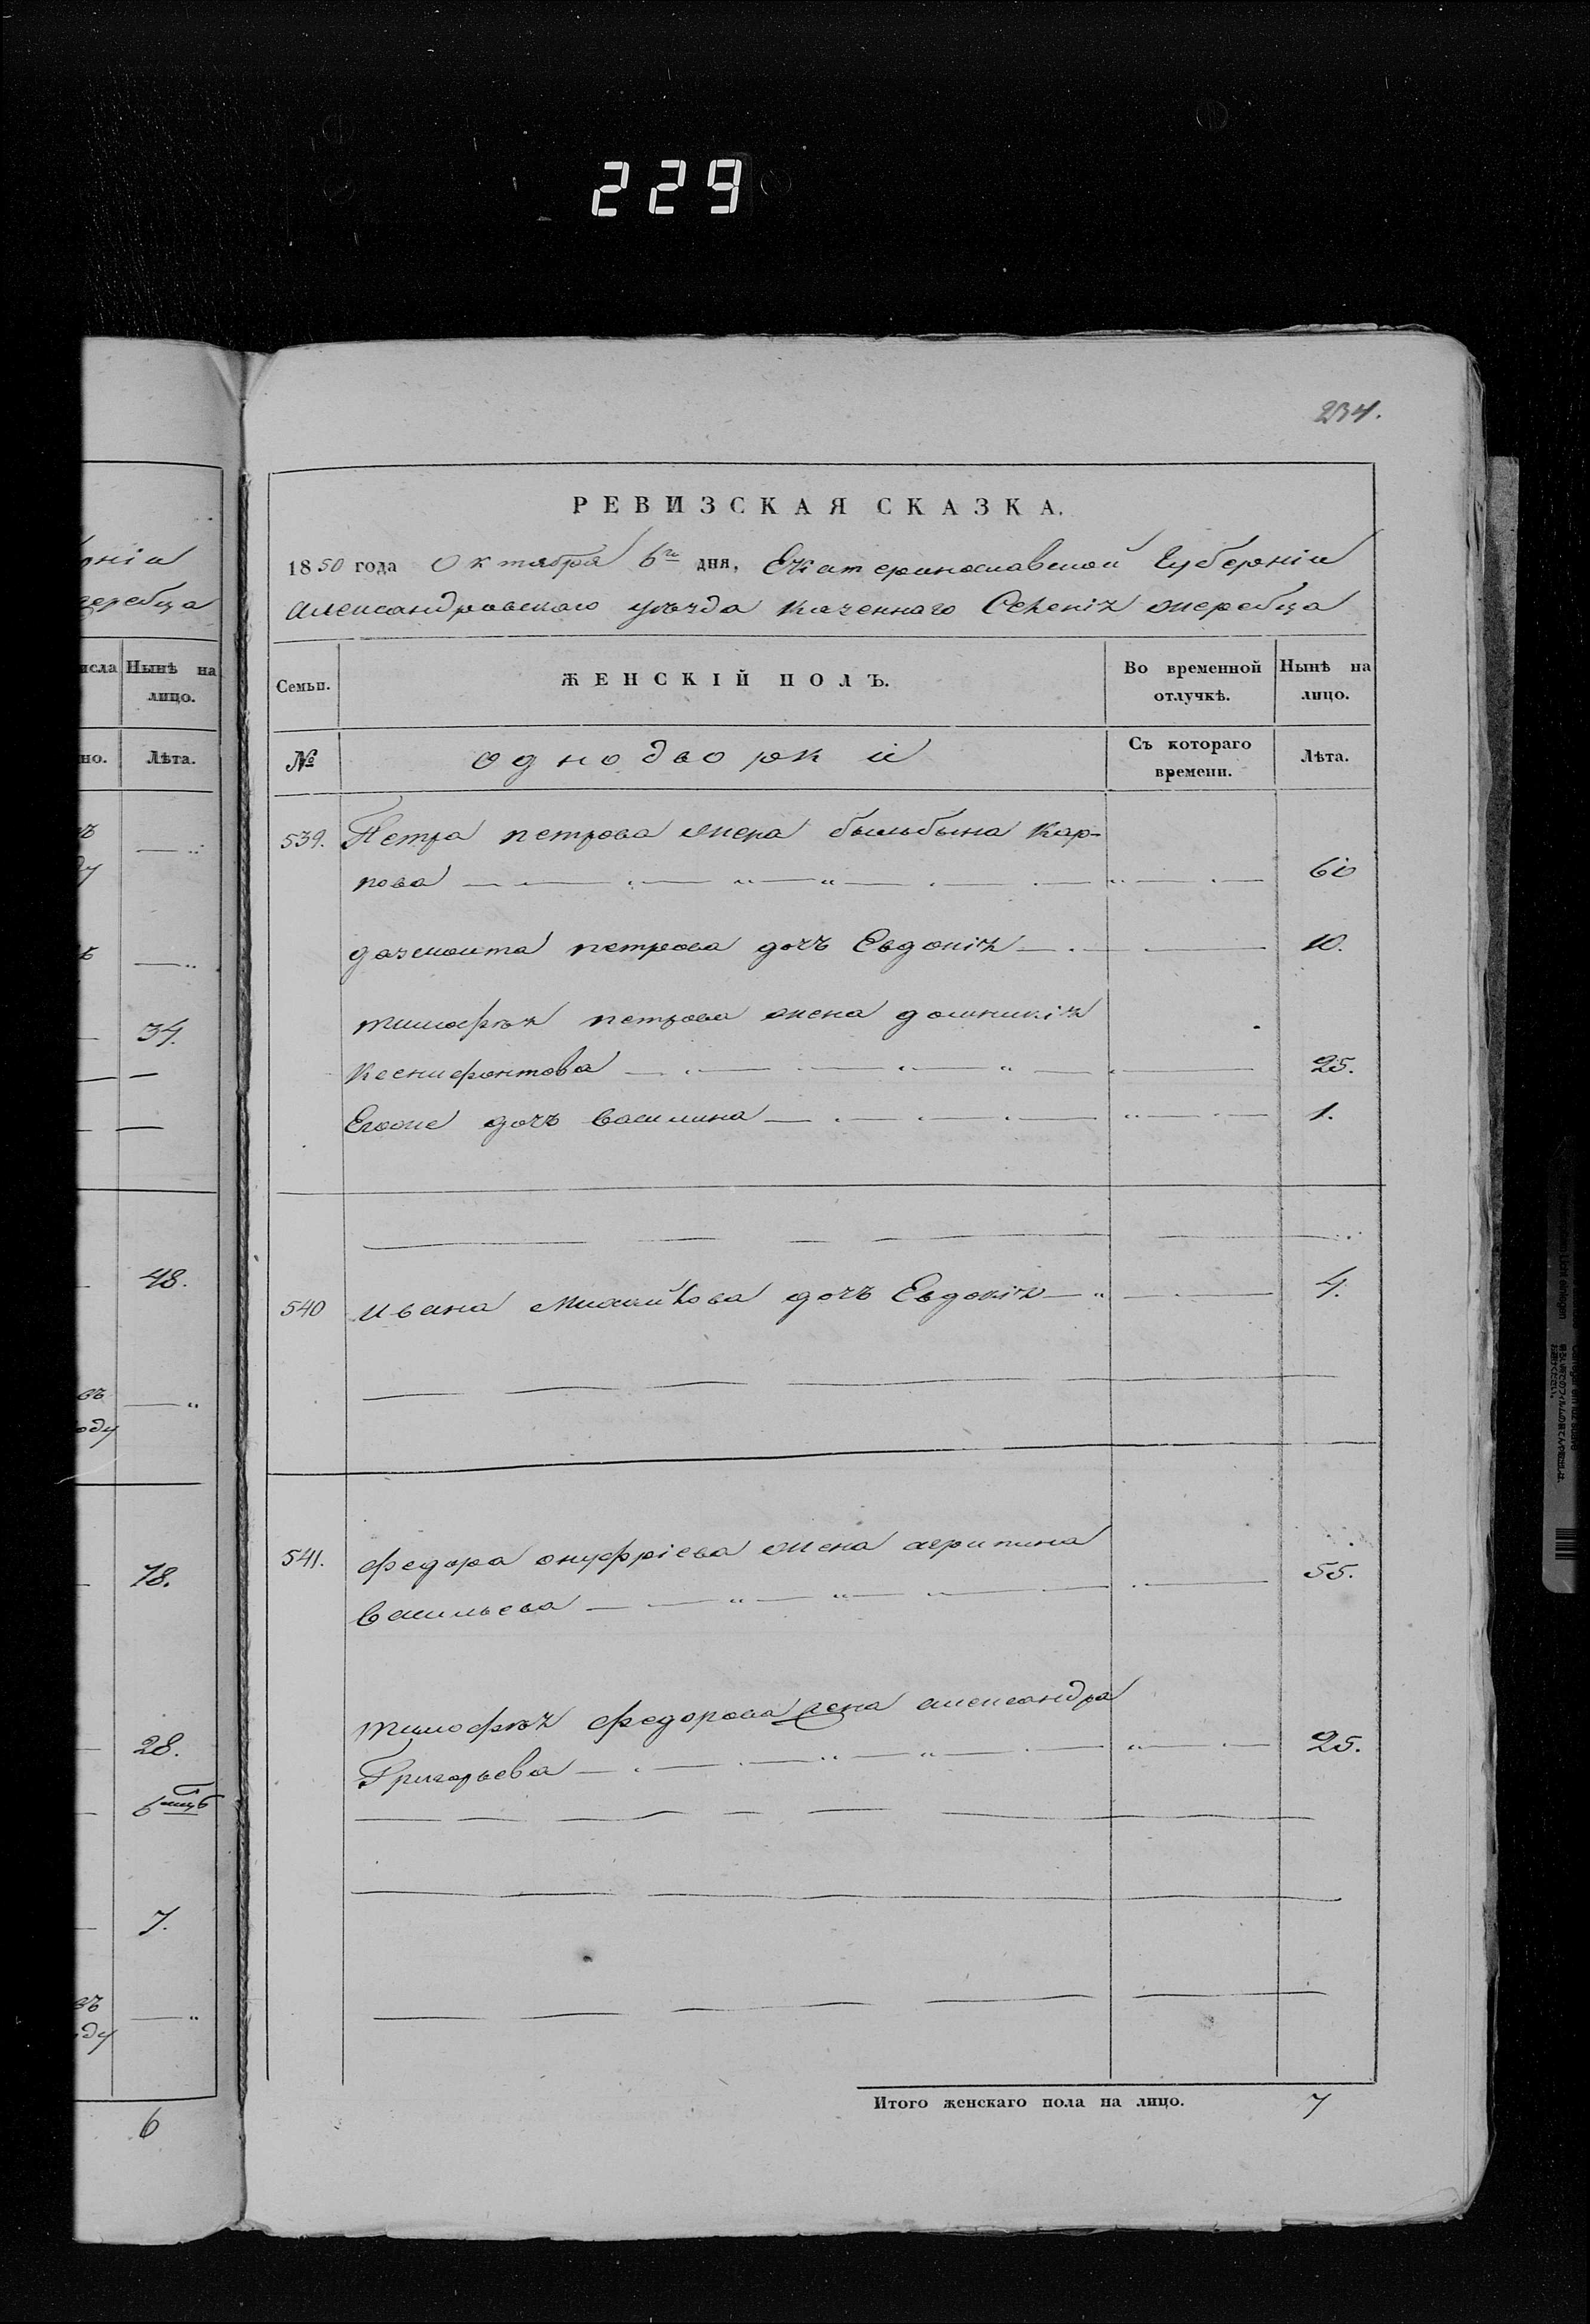 229
234.
РЕВИЗСКАЯ СКАЗКА.
1850 года Октября 6го дня, Екатеринославской Губерніи
Александровскаго уѣзда казеннаго Селенія жеребца
Семьи.
ЖЕНСКІЙ ПОЛЪ.
Во временной отлучкѣ.
Нынѣ на лицо.
№
однодворки
Съ котораго времени.
Лѣта.
539. Петра петрова жена Кар-
пова 60
петрова дочь Евдокія 10.
тимофѣя петрова жена домникія
Ксенифонтова 25.
Егоже дочь василина 1.
540 Ивана Михайлова дочь Евдокія 4.
541. федора онуфріева жена агрипина
Васильева 55.
тимофѣя федорова жена александра
Григорьева 25.
Итого женскаго пола на лицо. 7
рніи
жеребца
исла
Нынѣ на лицо.
но.
Лѣта.
34.
48.
въ
оду
78.
28.
7.
въ
ду
6